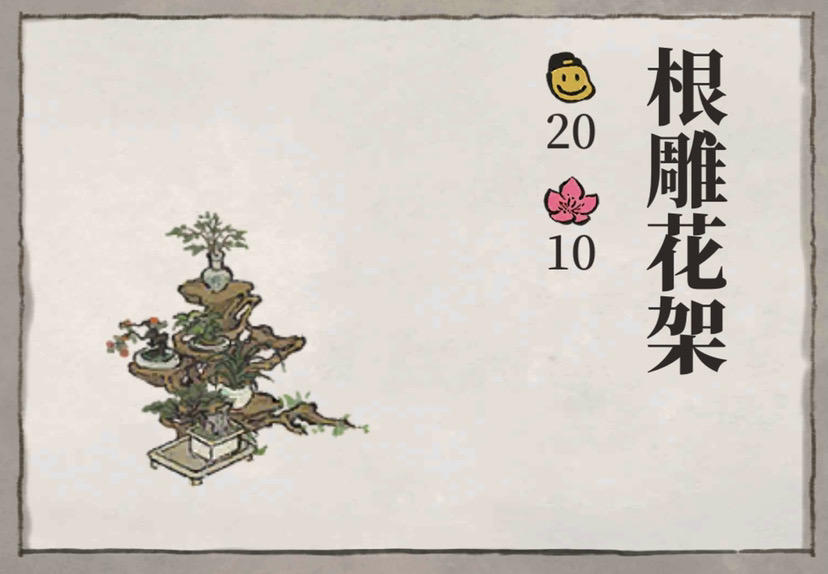 根雕花架
20
10